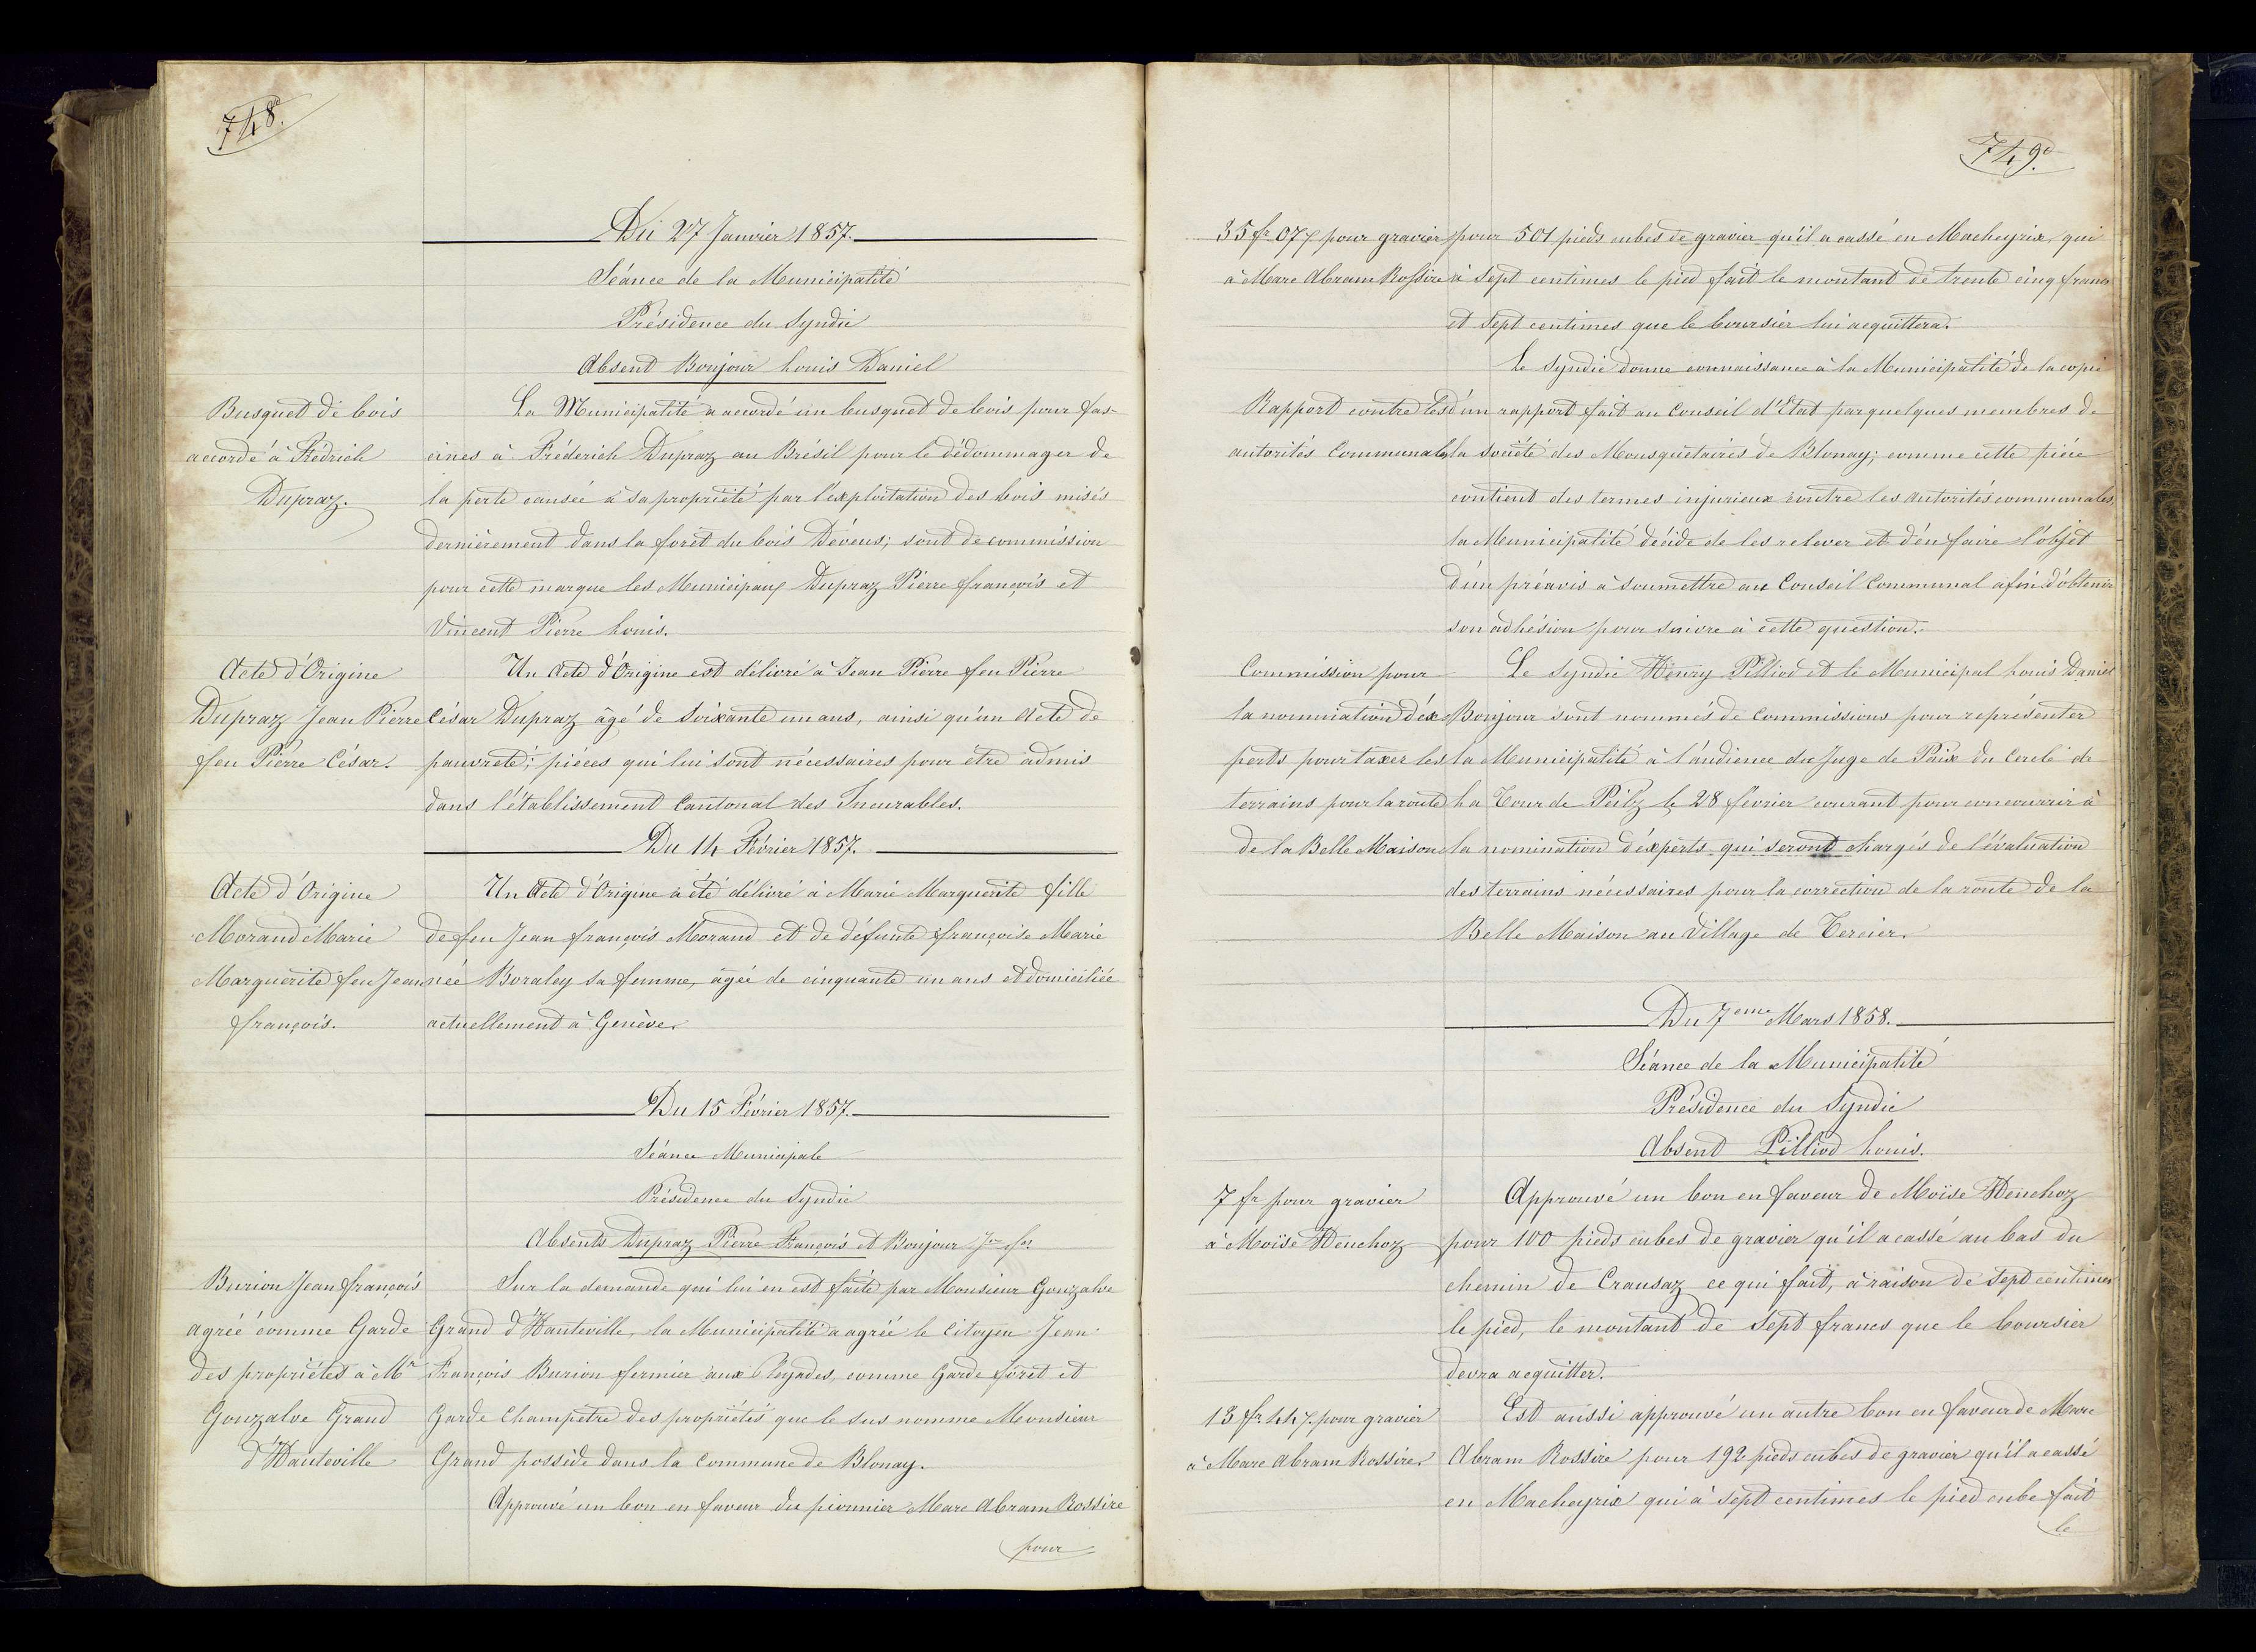 748.
Du 27 Janvier 1857.
Séance de la Municipalité
Présidence du Syndic
Absent Bonjour Louis Daniel
Busquet de bois
accordé à Frédrich
Dupraz.
La Municipalité a accordé un busquet de bois pour fas-
cines à Fréderich Dupraz au Brésil pour le dédommager de
la perte causée à sa propriété par l'exploitation des bois misés
dernièrement dans la forêt du bois Dévens; sont de commission
pour cette marque les Municipaux Dupraz Pierre françois et
Vincent Pierre Louis.
Acte d'Origine
Dupraz Jean Pierre
feu Pierre César.
Un Acte d'Origine est délivré à Jean Pierre feu Pierre
César Dupraz âgé de soixante un ans, ainsi qu'un Acte de
pauvreté; pièces qui lui sont nécessaires pour être admis
dans l'établissement Cantonal des Incurables.
Du 14 Février 1857.
Acte d'Origine
Morand Marie
Marguerite feu Jean
françois.
Un Acte d'Origine a été délivré à Marie Marguerite fille
de feu Jean françois Morand et de défunte françoise Marie
née Boraley sa femme, âgée de cinquante un ans et domiciliée
actuellement à Genève.
Du 15 Février 1857.
Séance Municipale
Présidence du Syndic
Absents Dupraz Pierre François et Bonjour Jn fçs
Burion Jean françois
agréé comme Garde
des propriétés à Mr
Gonzalve Grand
d'Hauteville
Sur la demande qui lui en est faite par Monsieur Gonzalve
Grand d'Hauteville, la Municipalité a agréé le Citoyen Jean
François Burion fermier aux Pleyades, comme Garde forêt et
Garde Champêtre des propriétés que le sus nommé Monsieur
Grand possède dans la Commune de Blonay.
Approuvé un bon en faveur du pionnier Marc Abram Rossire
pour
749.
35 fr 07 c pour gravier
à Marc Abram Rossire
pour 501 pieds cubes de gravier qu'il a cassé en Macheyrix, qui
à sept centimes le pied fait le montant de trente cinq francs
et sept centimes que le boursier lui acquittera.
Rapport contre les
autorités Communales
Le Syndic donne connaissance à la Municipalité de la copie
d'un rapport fait au Conseil d'Etat par quelques membres de
la société des Mousquetaires de Blonay; comme cette pièce
contient des termes injurieux contre les autorités communales,
la Municipalité décide de les relever et d'en faire l'objet
d'un préavis à soumettre au Conseil Communal afin d'obtenir
son adhésion pour suivre à cette question.
Commission pour
la nomination d'ex
perts pour taxer les
terrains pour la route
de la Belle Maison
Le Syndic Henry Pilliod et le Municipal Louis Daniel
Bonjour sont nommés de Commissions pour représenter
la Municipalité à l'audience du Juge de Paix du Cercle de
La Tour de Peilz le 28 février courant pour concourrir à
la nomination d'experts qui seront chargés de l'évaluation
des terrains nécessaires pour la correction de la route de la
Belle Maison au Village de Tercier.
Du 7eme Mars 1858.
Séance de la Municipalité
Présidence du Syndic
Absent Pilliod Louis.
7 fr pour gravier
à Moïse Henchoz
Approuvé un bon en faveur de Moïse Henchoz
pour 100 pieds cubes de gravier qu'il a cassé au bas du
chemin de Crausaz ce qui fait, à raison de sept centimes
le pied, le montant de sept francs que le boursier
devra acquitter.
13 fr 44 c. pour gravier
à Marc Abram Rossire.
Est aussi approuvé un autre bon en faveur de Marc
Abram Rossire pour 192 pieds cubes de gravier qu'il a cassé
en Macheyrix qui à sept centimes le pied cube fait
le